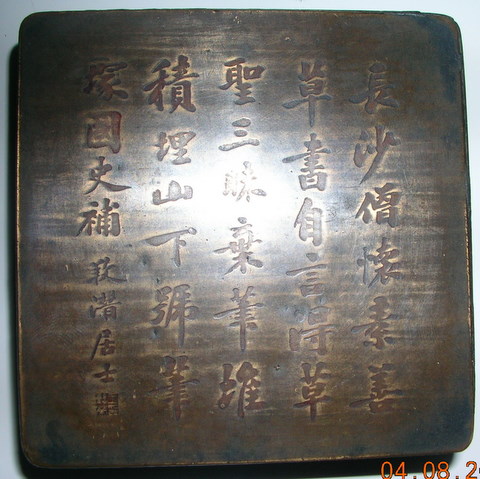 長沙僧懷素善
草書自言得草
聖三昧棄筆堆
積埋山下號筆
塚國史補 階居士
04.08.2